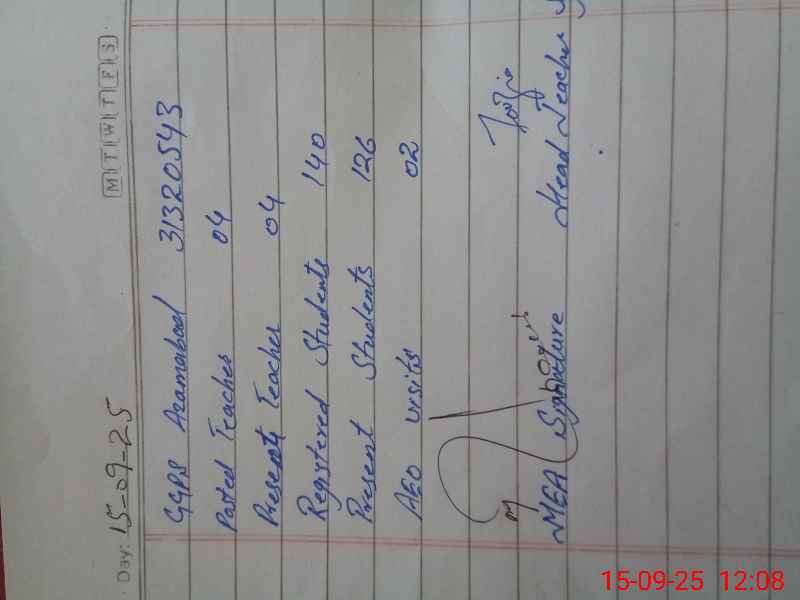 Day: 15-09-25
M T W T F S
GGPS Azamabad 31320543
Posted Teacher 04
Present Teacher 04
Registered Students 140
Present Students 126
AEO visits 02
MEA Signature Head Teacher
15-09-25 12:08